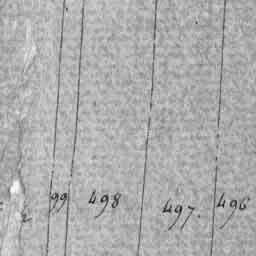 99 498 497. 496